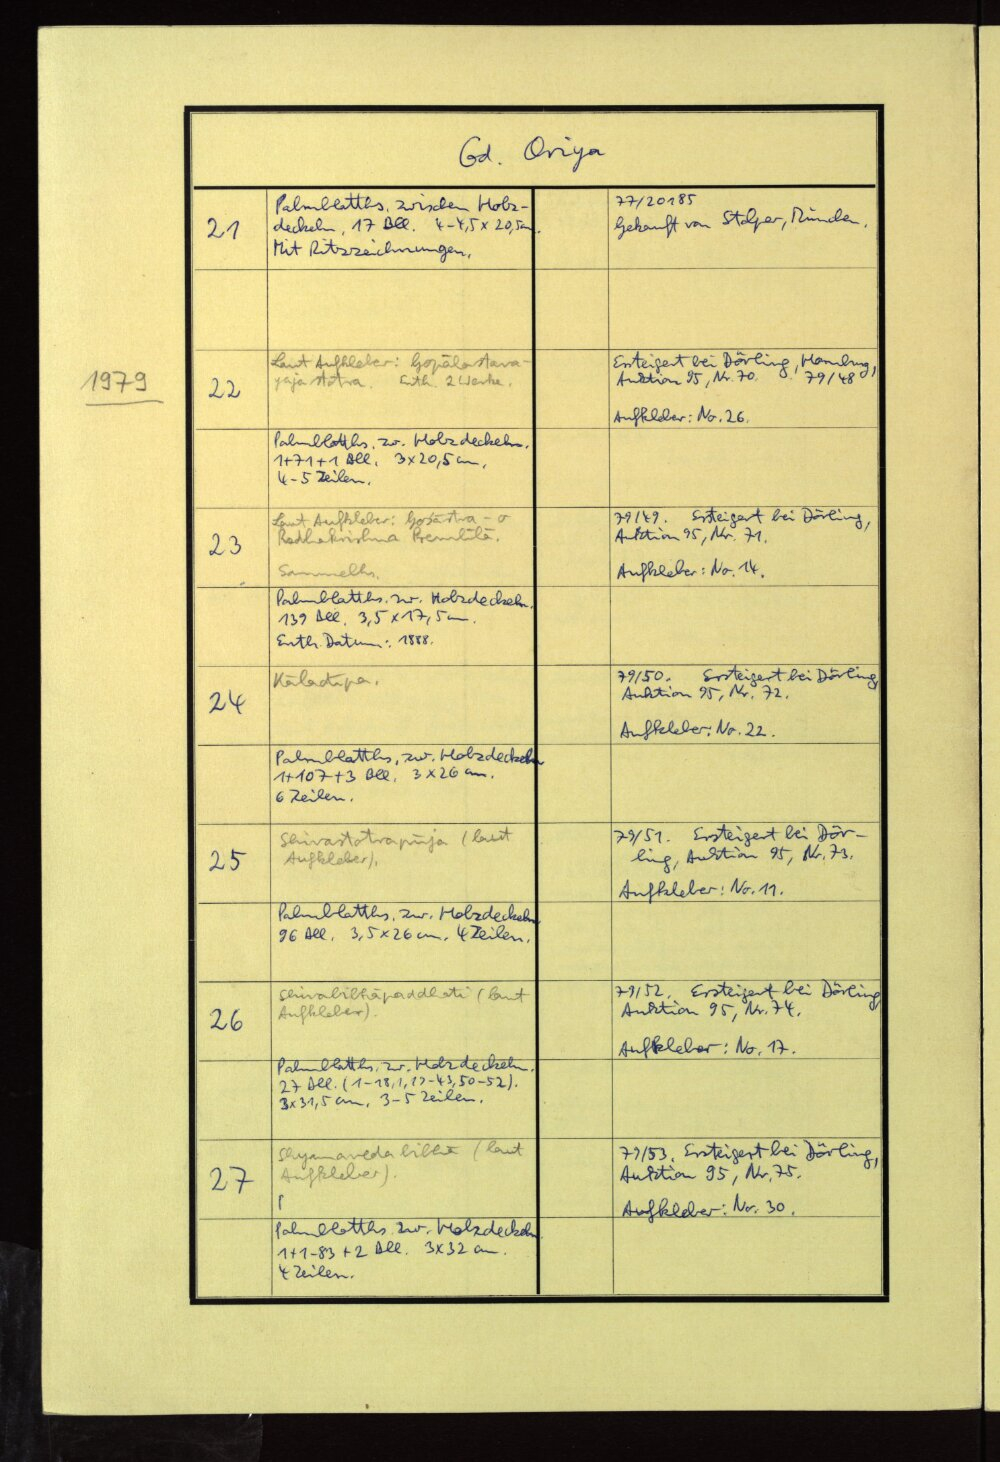 Cod. Oriya
21
Palmblatths. zwischen Holz-
deckeln, 17 Bll. 4-4,5 x 20,5 cm.
Mit Ritzzeichnungen.
77/20185
Gekauft von Stolper, München.
1979
22
Laut Aufkleber: Gopālastava-
rajastotra. Enth. 2 Werke.
Ersteigert bei Dörling, Hamburg,
Auktion 95, Nr. 70. 79/48
Aufkleber: No. 26.
Palmblatths. zw. Holzdeckeln.
1+71+1 Bll. 3x20,5 cm.
4-5 Zeilen.
23
Laut Aufkleber:
Radhakrishna Premlīlā.
Sammelhs.
79/49. Ersteigert bei Dörling,
Auktion 95, Nr. 71.
Aufkleber: No. 14.
Palmblatths. zw. Holzdeckeln.
139 Bll. 3,5x17,5 cm.
Enth. Datum: 1888.
24
79/50. Ersteigert bei Dörling
Auktion 95, Nr. 72.
Aufkleber: No. 22.
Palmblatths. zw. Holzdeckeln
1+107+3 Bll. 3x26 cm.
6 Zeilen.
25
Shivastotrapūja (laut
Aufkleber).
79/51. Ersteigert bei Dör-
ling, Auktion 95, Nr. 73.
Aufkleber: No. 11.
Palmblatths. zw. Holzdeckeln
96 Bll. 3,5x26 cm. 4 Zeilen.
26
Shivabibhāpaddhati (laut
Aufkleber).
79/52. Ersteigert bei Dörling
Auktion 95, Nr. 74.
Aufkleber: No. 17.
Palmblatths. zw. Holzdeckeln.
27 Bll. (1-18,1,19-43,50-52).
3x31,5 cm. 3-5 Zeilen.
27
Shyamaveda bibhā (laut
Aufkleber).
79/53. Ersteigert bei Dörling,
Auktion 95, Nr. 75.
Aufkleber: No. 30.
Palmblatths. zw. Holzdeckeln.
1+1-83+2 Bll. 3x32 cm.
4 Zeilen.